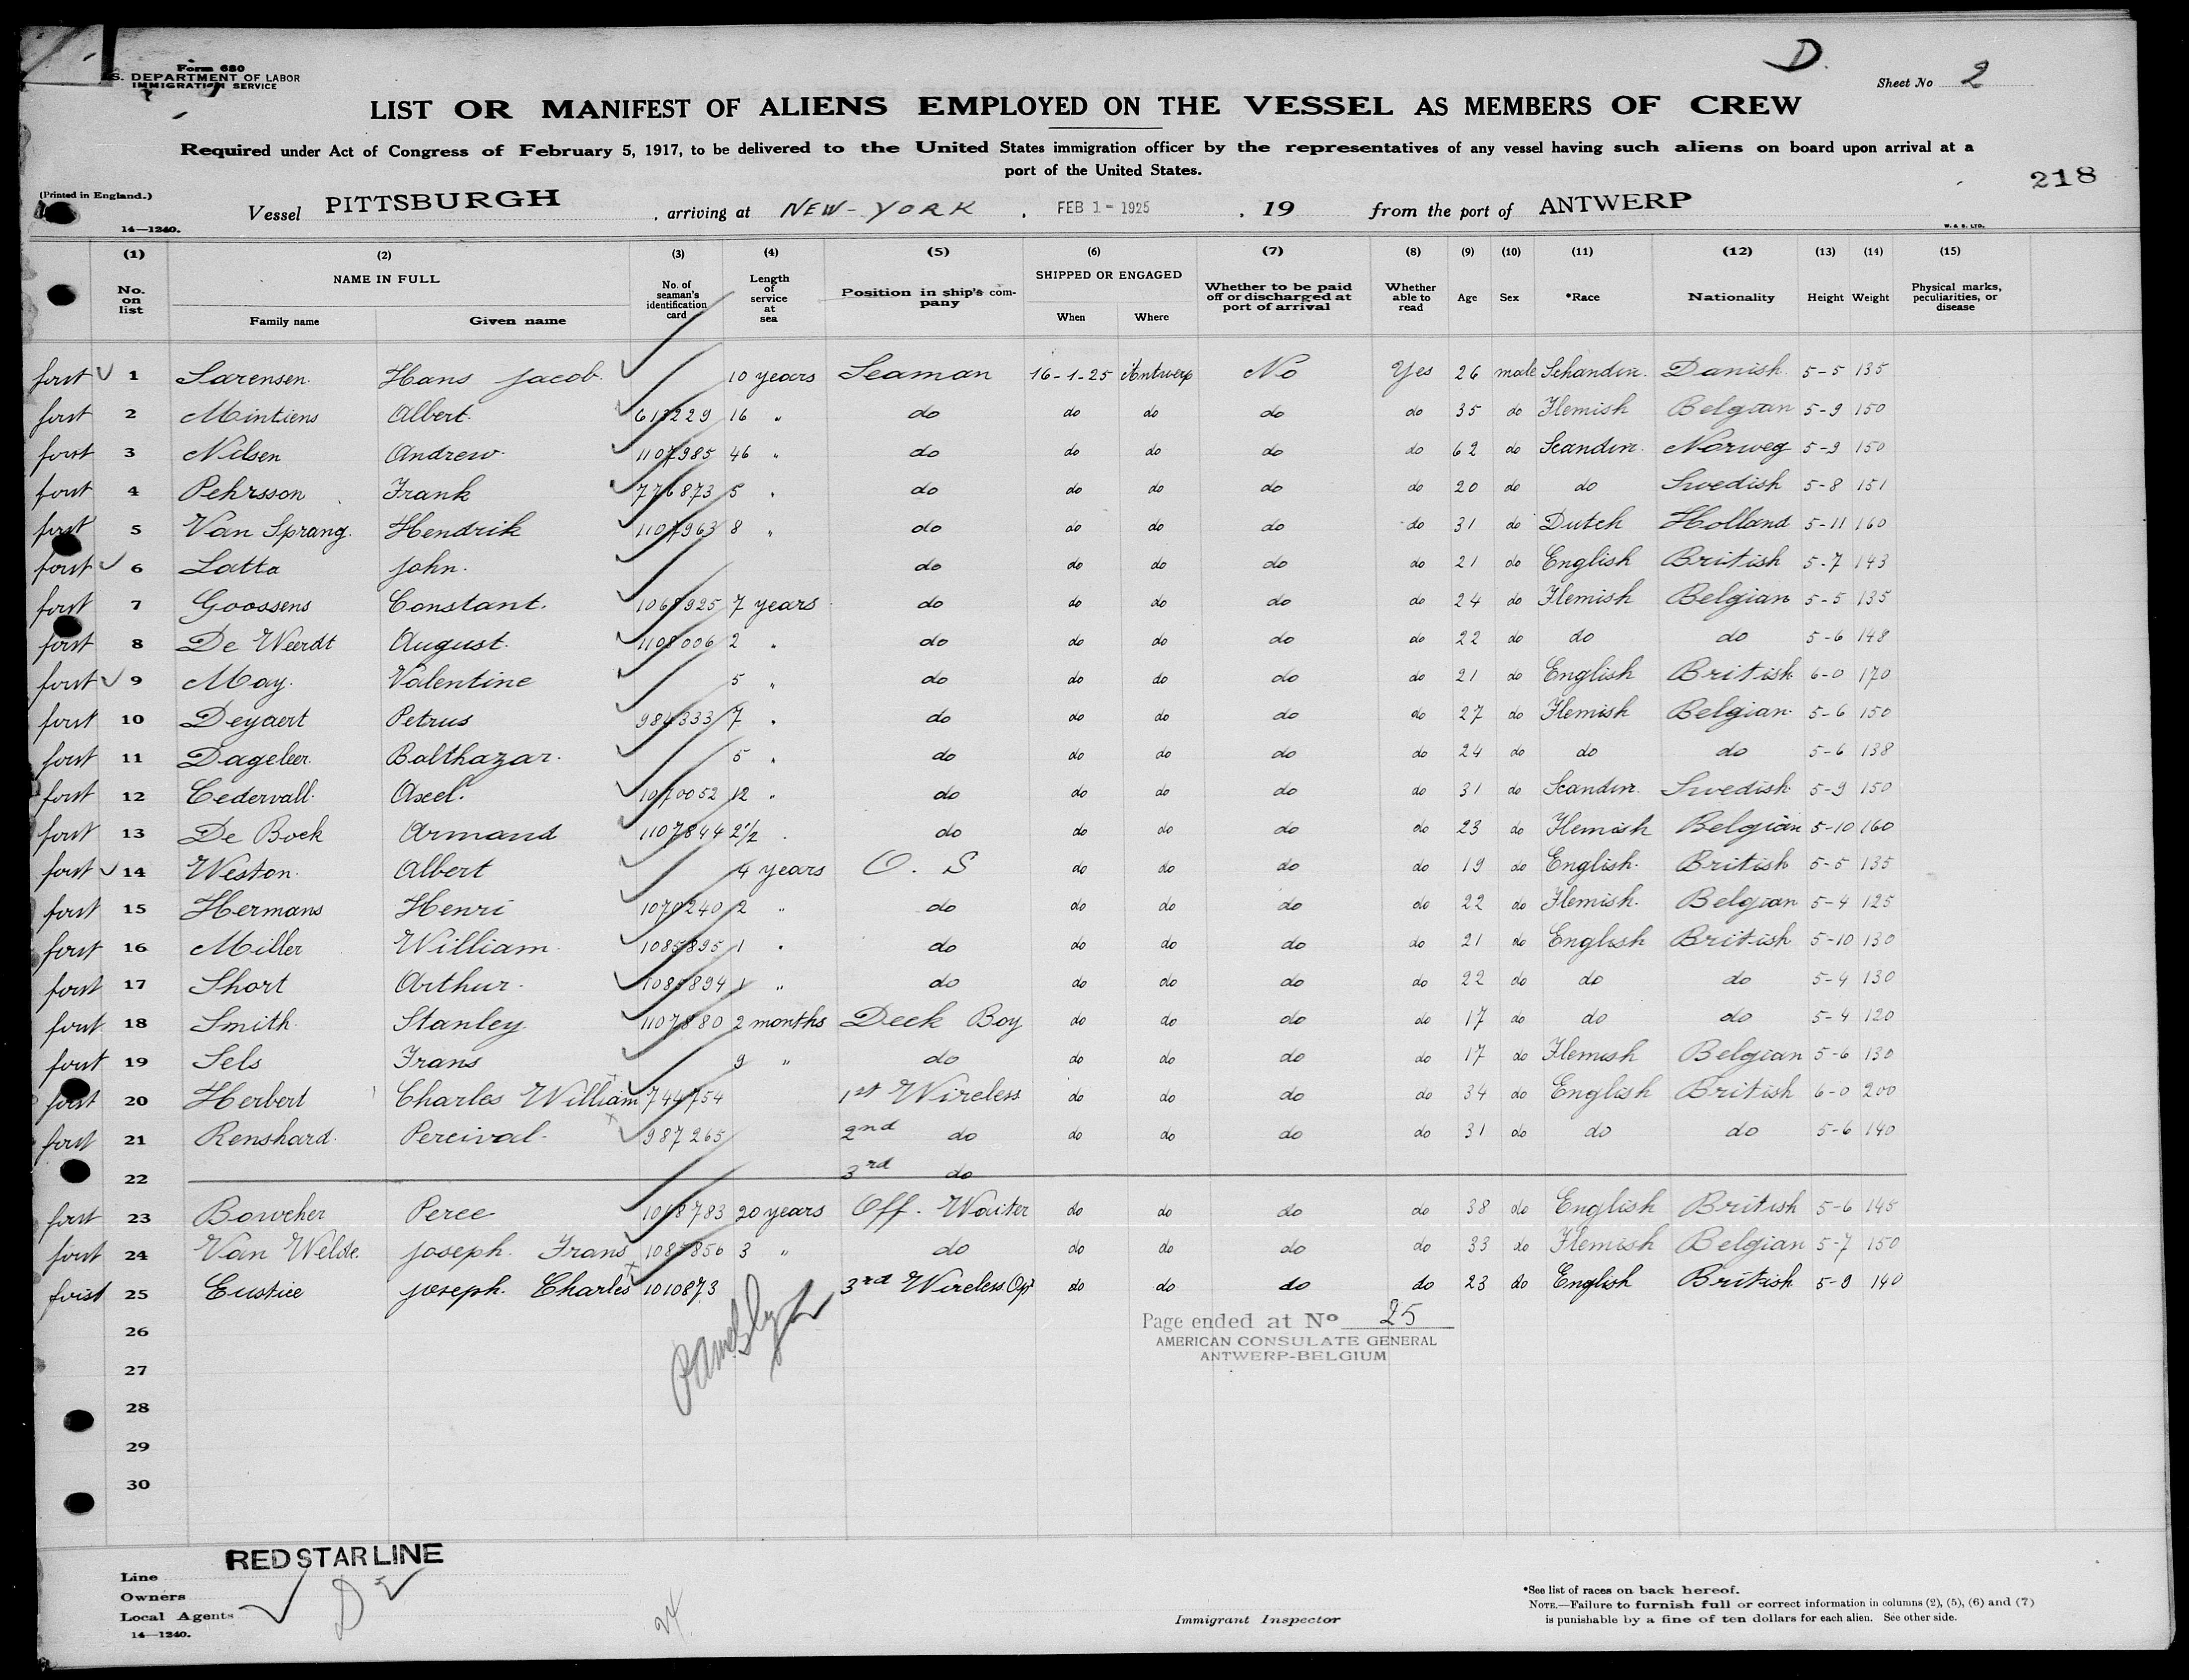 D.
Form 680
S. DEPARTMENT OF LABOR
IMMIGRATION SERVICE
Sheet No 2
LIST OR MANIFEST OF ALIENS EMPLOYED ON THE VESSEL AS MEMBERS OF CREW
Required under Act of Congress of February 5, 1917, to be delivered to the United States immigration officer by the representatives of any vessel having such aliens on board upon arrival at a
port of the United States.
218
(Printed in England.)
Vessel PITTSBURGH, arriving at NEW-YORK, FEB 1 - 1925, 19 from the port of ANTWERP
14—1240.
W. & S. LTD.
(1) (2) (3) (4) (5) (6) (7) (8) (9) (10) (11) (12) (13) (14) (15)
No. on list NAME IN FULL Family name Given name No. of seaman's identification card Length of service at sea Position in ship's company SHIPPED OR ENGAGED When Where Whether to be paid off or discharged at port of arrival Whether able to read Age Sex *Race Nationality Height Weight Physical marks, peculiarities, or disease
first 1 Sarensen Hans Jacob 10 years Seaman 16-1-25 Antwerp No Yes 26 male Schandin. Danish 5-5 135
first 2 Mintiens Albert 613229 16 " do do do do do 35 do Flemish Belgian 5-9 150
first 3 Nilsen Andrew 1107985 46 " do do do do do 62 do Scandin. Norweg 5-9 150
first 4 Pehrsson Frank 776873 5 " do do do do do 20 do do Swedish 5-8 151
first 5 Van Sprang Hendrik 1107963 8 " do do do do do 31 do Dutch Holland 5-11 160
first 6 Latta John. do do do do do 21 do English British 5-7 143
first 7 Goossens Constant. 1068925 7 years do do do do do 24 do Flemish Belgian 5-5 135
first 8 De Weerdt August. 1108006 2 " do do do do do 22 do do do 5-6 148
first 9 May. Valentine 5 " do do do do do 21 do English British 6-0 170
first 10 Deyaert Petrus 984333 7 " do do do do do 27 do Flemish Belgian 5-6 150
first 11 Dageleer Balthazar. 5 " do do do do do 24 do do do 5-6 138
first 12 Cedervall Axel. 1070052 12 " do do do do do 31 do Scandin. Swedish 5-9 150
first 13 De Bock Armand 1107844 2 1/2 " do do do do do 23 do Flemish Belgian 5-10 160
first 14 Weston. Albert 4 years O. S do do do do 19 do English British 5-5 135
first 15 Hermans Henri 1070240 2 " do do do do do 22 do Flemish Belgian 5-4 125
first 16 Miller William 1085895 1 " do do do do do 21 do English British 5-10 130
first 17 Short Arthur. 1085894 1 " do do do do do 22 do do do 5-4 130
first 18 Smith Stanley 1107880 2 months Deck Boy do do do do 17 do do do 5-4 120
first 19 Sels Frans 9 " do do do do do 17 do Flemish Belgian 5-6 130
first 20 Herbert Charles William 744754 1st Wireless do do do do 34 do English British 6-0 200
first 21 Renshard Percival. 987265 2nd do do do do do 31 do do do 5-6 140
22 3rd do
first 23 Bowcher Perce 1068783 20 years Off. Waiter do do do do 38 do English British 5-6 145
first 24 Van Welde. Joseph. Frans 1085856 3 " do do do do do 33 do Flemish Belgian 5-7 150
first 25 Eustice Joseph. Charles 1010873 3rd Wireless Opr do do do do 23 do English British 5-9 140
Page ended at No 25
26
AMERICAN CONSULATE GENERAL
ANTWERP-BELGIUM
27
28
29
30
RED STAR LINE
Line
Owners
Local Agents
14—1240.
24
Immigrant Inspector
*See list of races on back hereof.
NOTE.—Failure to furnish full or correct information in columns (2), (5), (6) and (7)
is punishable by a fine of ten dollars for each alien. See other side.